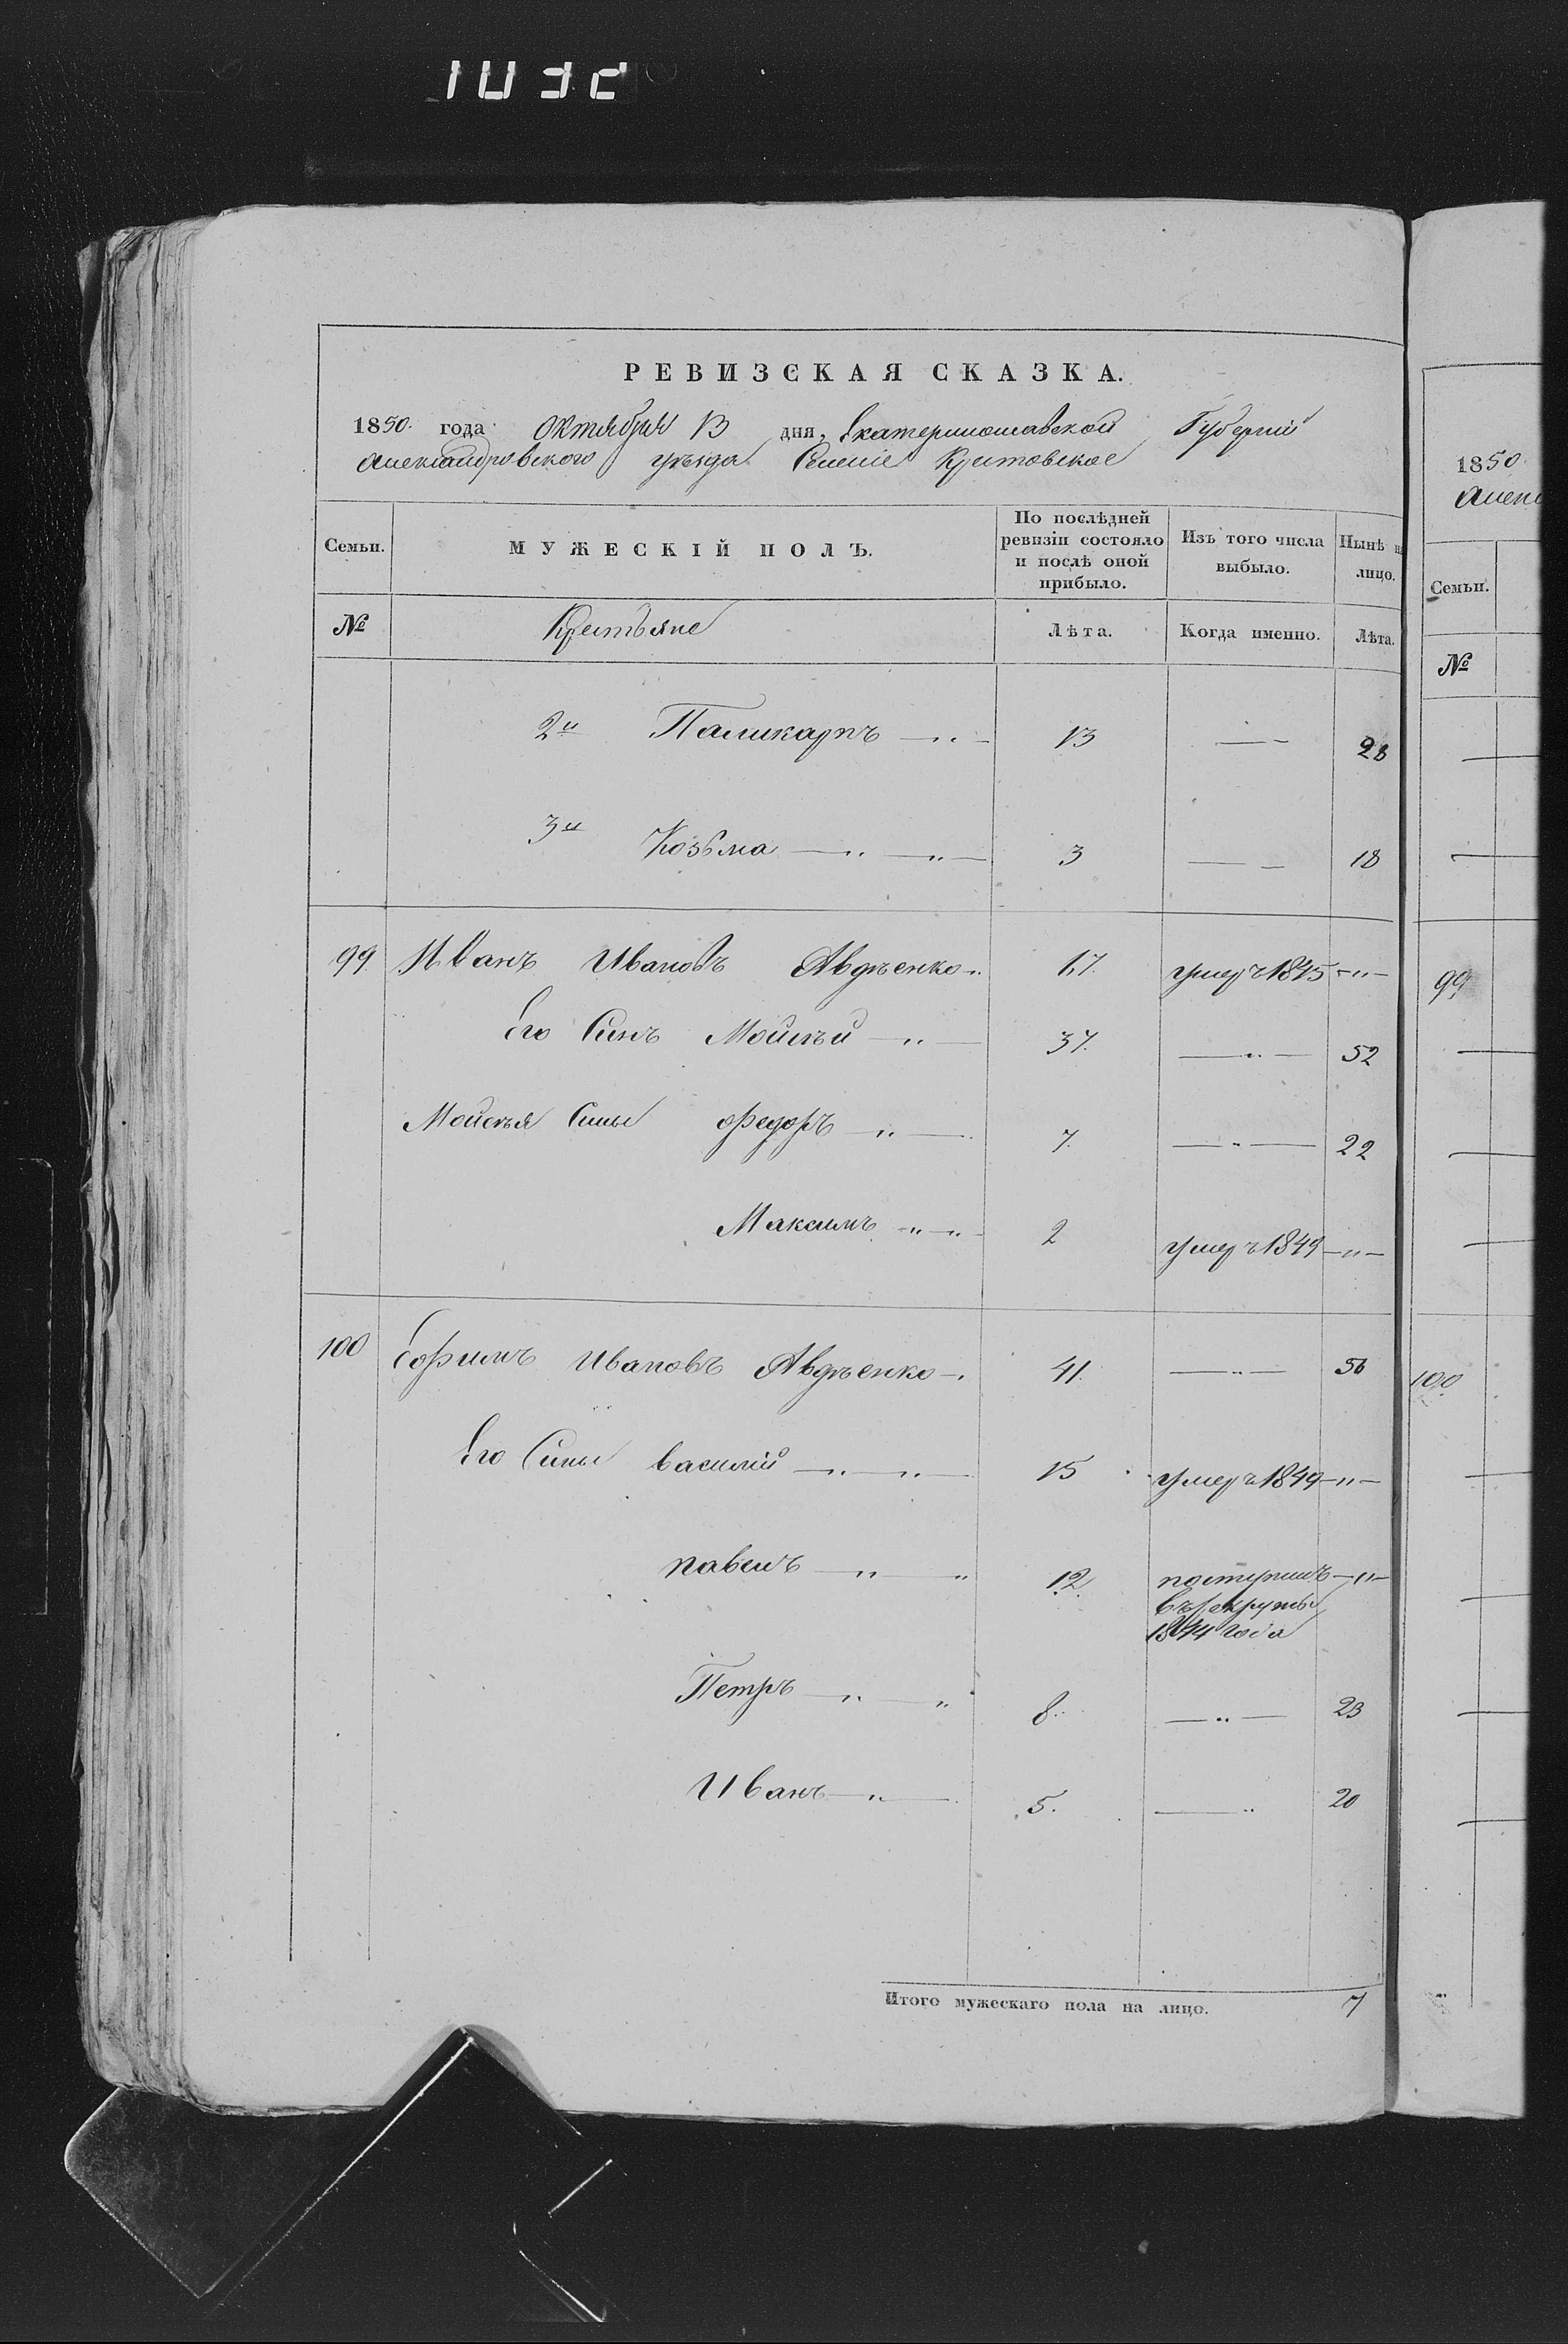 1032
РЕВИЗСКАЯ СКАЗКА.
1850. года октября 13 дня, Екатеринославской Губерніи
Александровского уѣзда Селеніе
Семьи. МУЖЕСКІЙ ПОЛЪ. По послѣдней ревизіи состояло и послѣ оной прибыло. Изъ того числа выбыло. Нынѣ на лицо.
№ Крестьяне Лѣта. Когда именно. Лѣта.
2й Паликарпъ — 13 — 28
3й Козьма — 3 — 18
99. Иванъ Ивановъ Авдѣенко 17. умеръ 1845 —"—
Его Синъ Мойсѣй —"— 37. —"— 52
Мойсѣя Сины Федоръ —"— 7. —"— 22
Максимъ —"— 2 умеръ 1849 —"—
100 Ефимъ Ивановъ Авдѣенко — 41. —"— 56
Его Сины василій —"— 15 умеръ 1849 —"—
павелъ —"— 12. поступилъ —"—
въ рекруты
1844 года
Петръ —"— 8. —"— 23
Иванъ —"— 5. —"— 20
Итого мужескаго пола на лицо. 7
1850
Алек
Семьи.
№
99
100